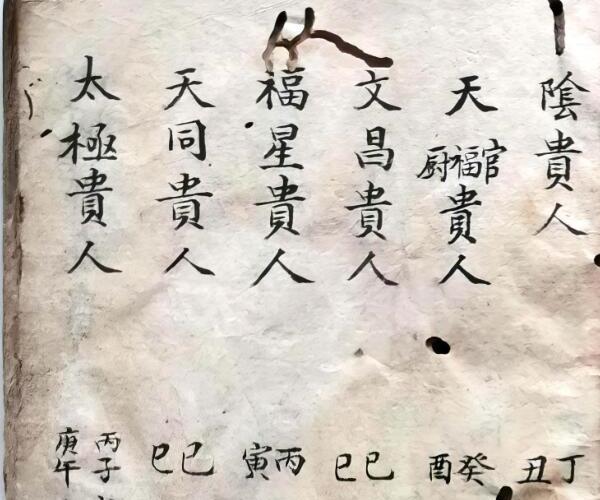 陰貴人
丁丑
天官福厨貴人
癸酉
文昌貴人
已巳
福星貴人
丙寅
天同貴人
已巳
太極貴人
丙子
庚午